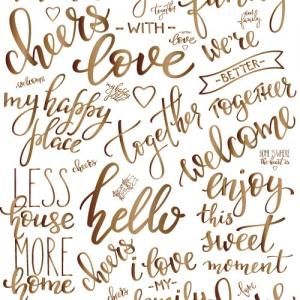 together
family
cheers
- WITH -
love
love
we're
welcome
my happy
place
BETTER
TOGETHER
together
welcome
HOME IS WHERE
the heart is
cheers
LESS
house
MORE
home
hello
enjoy
this
sweet
moment
cheers
i love
- MY -
family
love
cheers